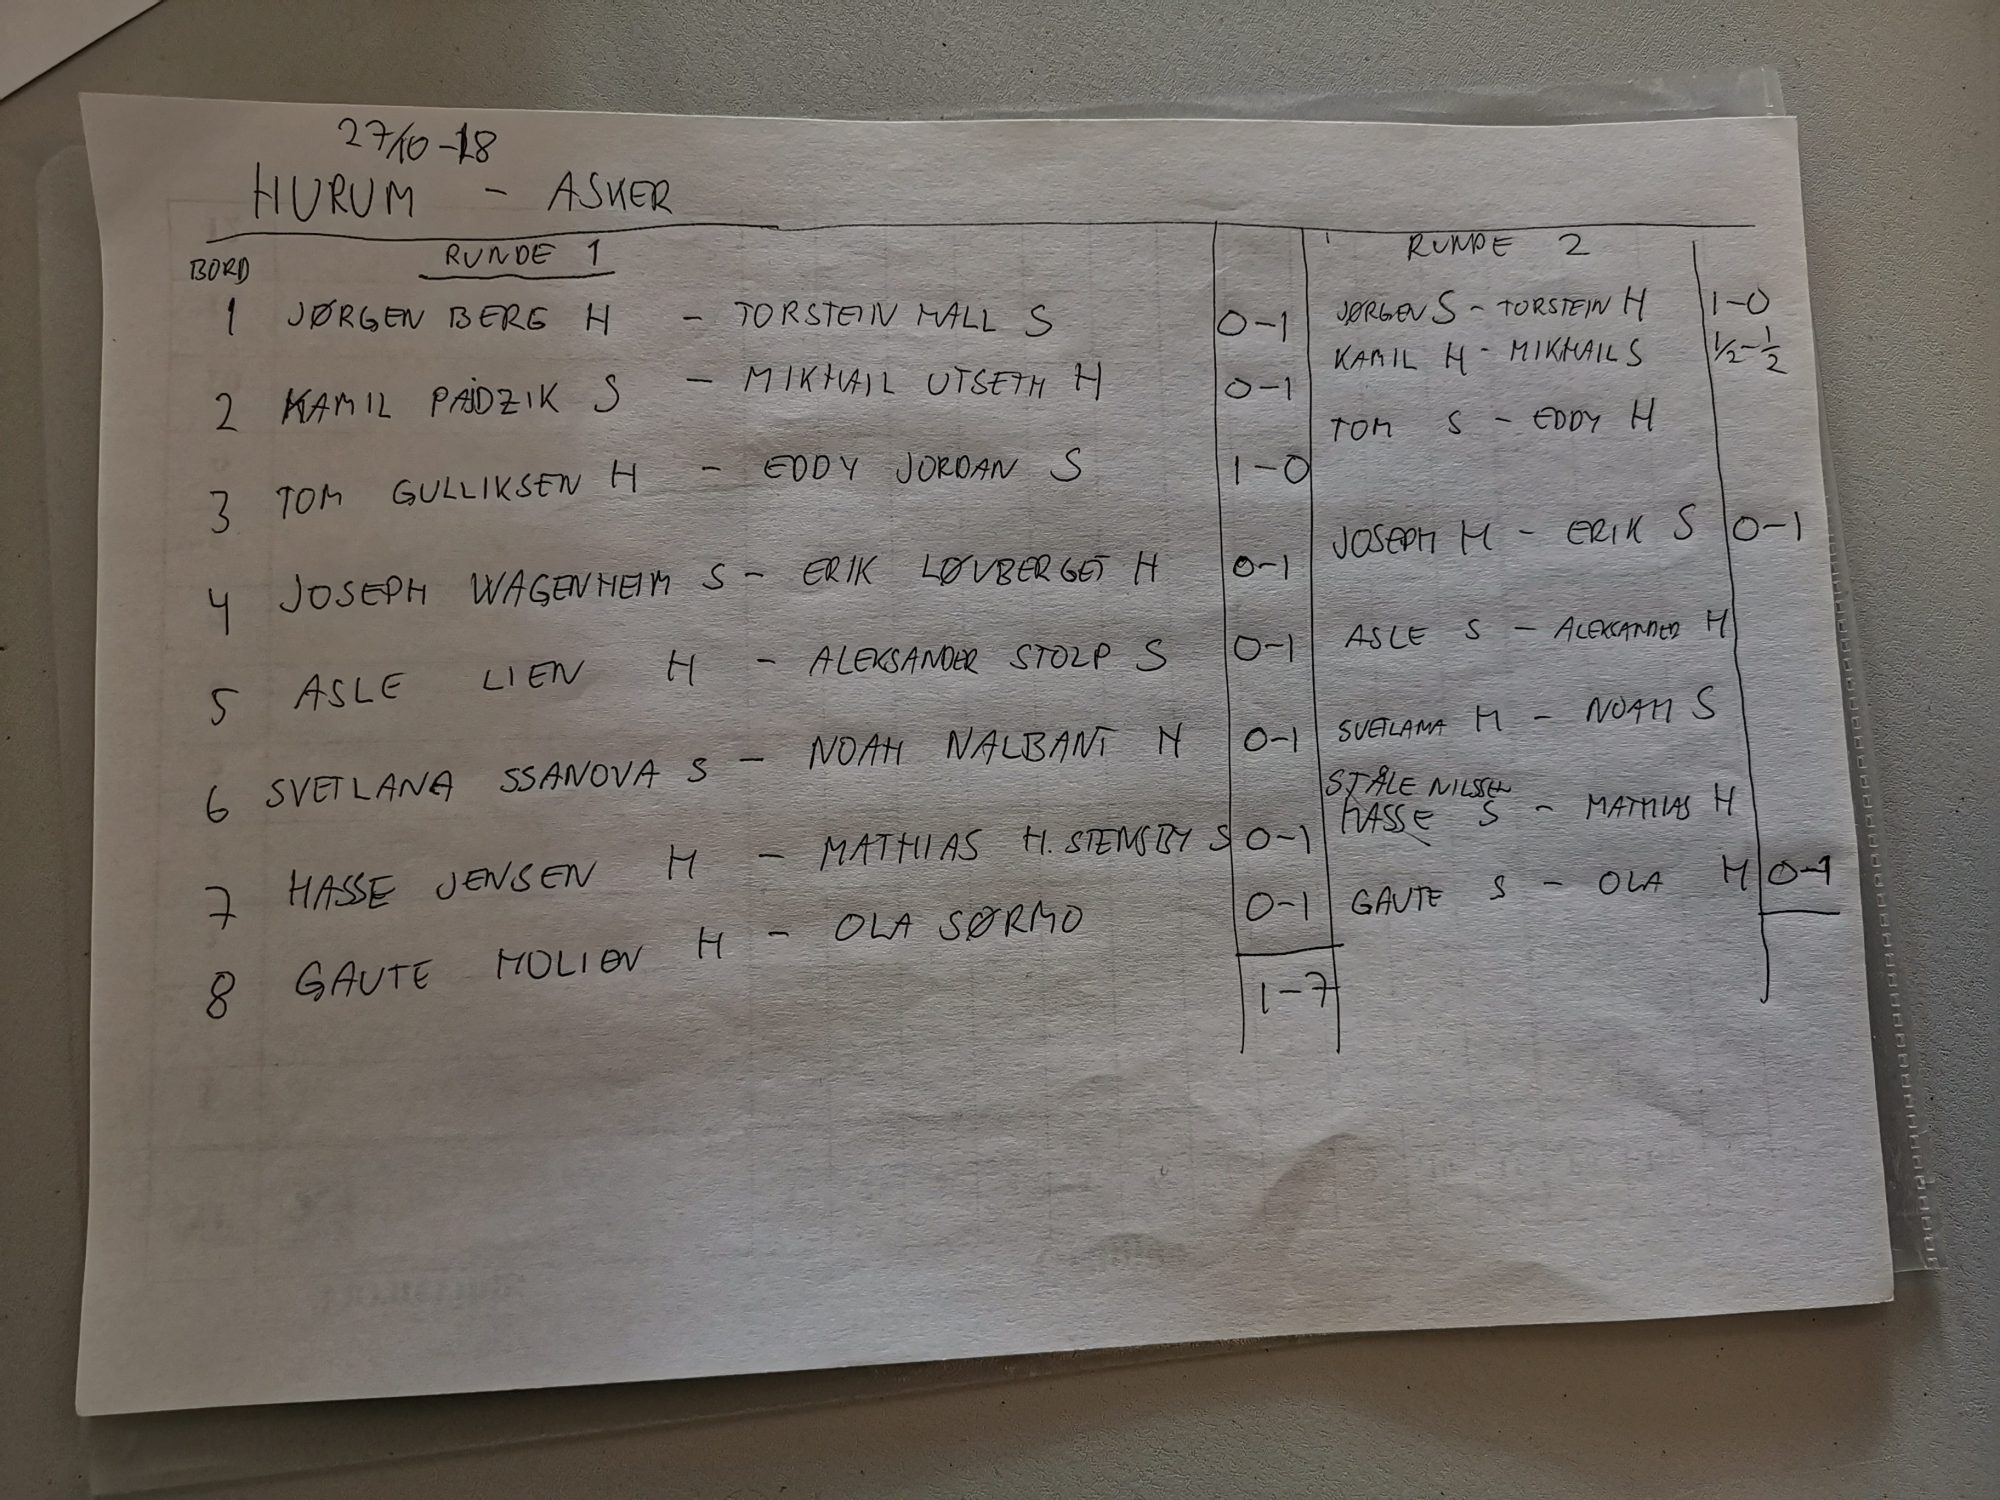 27/10-18
HURUM - ASKER
BORD RUNDE 1 RUNDE 2
1 JØRGEN BERG H - TORSTEIN HALL S 0-1 JØRGEN S - TORSTEIN H 1-0
2 KAMIL PAJDZIK S - MIKHAIL UTSETH H 0-1 KAMIL H - MIKHAIL S 1/2-1/2
3 TOM GULLIKSEN H - EDDY JORDAN S 1-0 TOM S - EDDY H
4 JOSEPH WAGENHEIM S - ERIK LØVBERGET H 0-1 JOSEPH H - ERIK S 0-1
5 ASLE LIEN H - ALEKSANDER STOLP S 0-1 ASLE S - ALEKSANDER H
6 SVETLANA SSANOVA S - NOAH NALBANT H 0-1 SVETLANA H - NOAH S
STÅLE NILSSEN
7 HASSE JENSEN H - MATHIAS H. STENSBY S 0-1 HASSE S - MATHIAS H
8 GAUTE MOLIEN H - OLA SØRMO 0-1 GAUTE S - OLA H 0-1
1-7